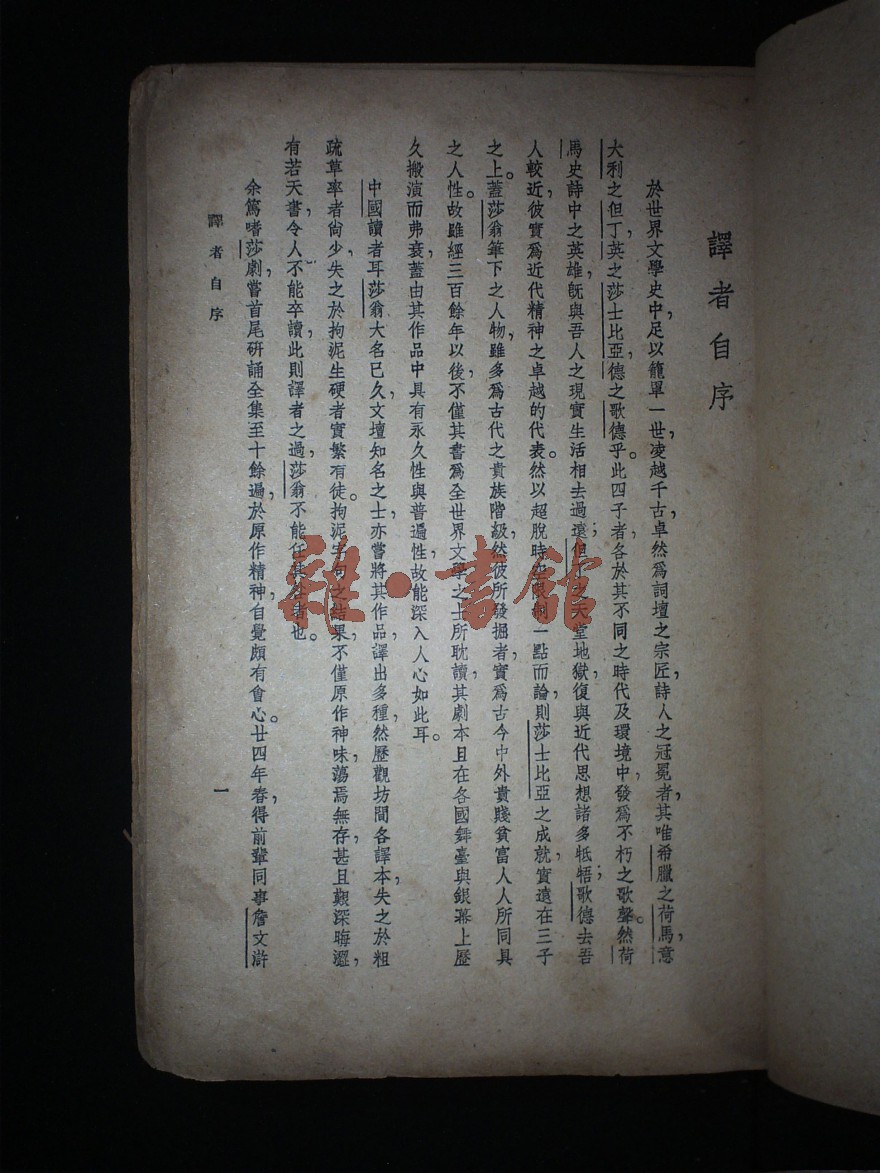 譯者自序
於世界文學史中，足以籠罩一世，凌越千古，卓然爲詞壇之宗匠，詩人之冠冕者，其唯希臘之荷馬，意
大利之但丁，英之莎士比亞，德之歌德乎。此四子者，各於其不同之時代及環境中，發爲不朽之歌聲。然荷
馬史詩中之英雄，旣與吾人之現實生活相去過遠；但丁之天堂地獄，復與近代思想諸多牴牾；歌德去吾
人較近，彼實爲近代精神之卓越的代表。然以超脫時空限制一點而論，則莎士比亞之成就，實遠在三子
之上。蓋莎翁筆下之人物，雖多爲古代之貴族階級，然彼所發掘者，實爲古今中外貴賤貧富人人所同具
之人性。故雖經三百餘年以後，不僅其書爲全世界文學之士所耽讀，其劇本且在各國舞臺與銀幕上歷
久搬演而弗衰，蓋由其作品中具有永久性與普遍性，故能深入人心如此耳。
中國讀者耳莎翁大名已久，文壇知名之士，亦嘗將其作品，譯出多種，然歷觀坊間各譯本，失之於粗
疏草率者尙少，失之於拘泥生硬者實繁有徒。拘泥字句之結果，不僅原作神味，蕩焉無存，甚且艱深晦澀，
有若天書，令人不能卒讀，此則譯者之過，莎翁不能任其咎者也。
余篤嗜莎劇，嘗首尾研誦全集至十餘遍，於原作精神，自覺頗有會心。廿四年春，得前輩同事詹文滸
譯者自序
一
雜·書館